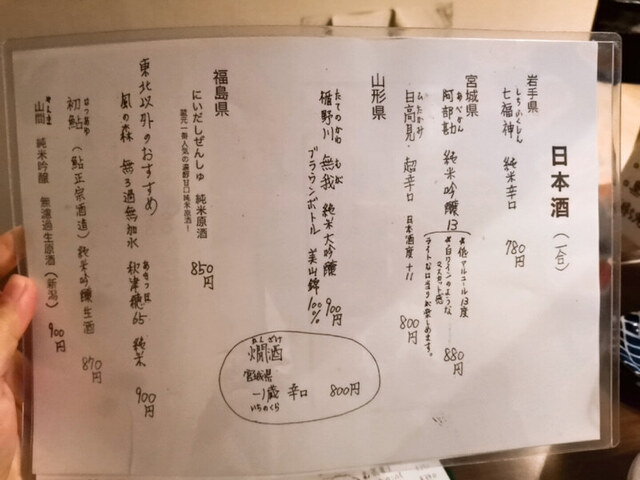 日本酒（一合）
岩手県
しちふくじん
七福神 純米辛口 780円
宮城県
あべかん
阿部勘 純米吟醸13 880円
*低アルコール13度
*白ワインのような
マスカット感
ライトな口当りが楽しめます。
ひたかみ
日高見 超辛口 日本酒度+11 800円
山形県
たてのかわ むが
楯野川 無我 純米大吟醸 900円
ブラウンボトル 美山錦100%
福島県
にいだしぜんしゅ 純米原酒 850円
蔵元一番人気の濃醇甘口純米原酒！
東北以外のおすすめ
風の森 無ろ過無加水 秋津穂65 純米 900円
あきつほ
はつあゆ
初鮎（鮎正宗酒造）純米吟醸生酒 870円
やんま
山間 純米吟醸 無濾過生原酒（新潟） 900円
かんざけ
燗酒
宮城県
一ノ蔵 辛口 800円
いちのくら